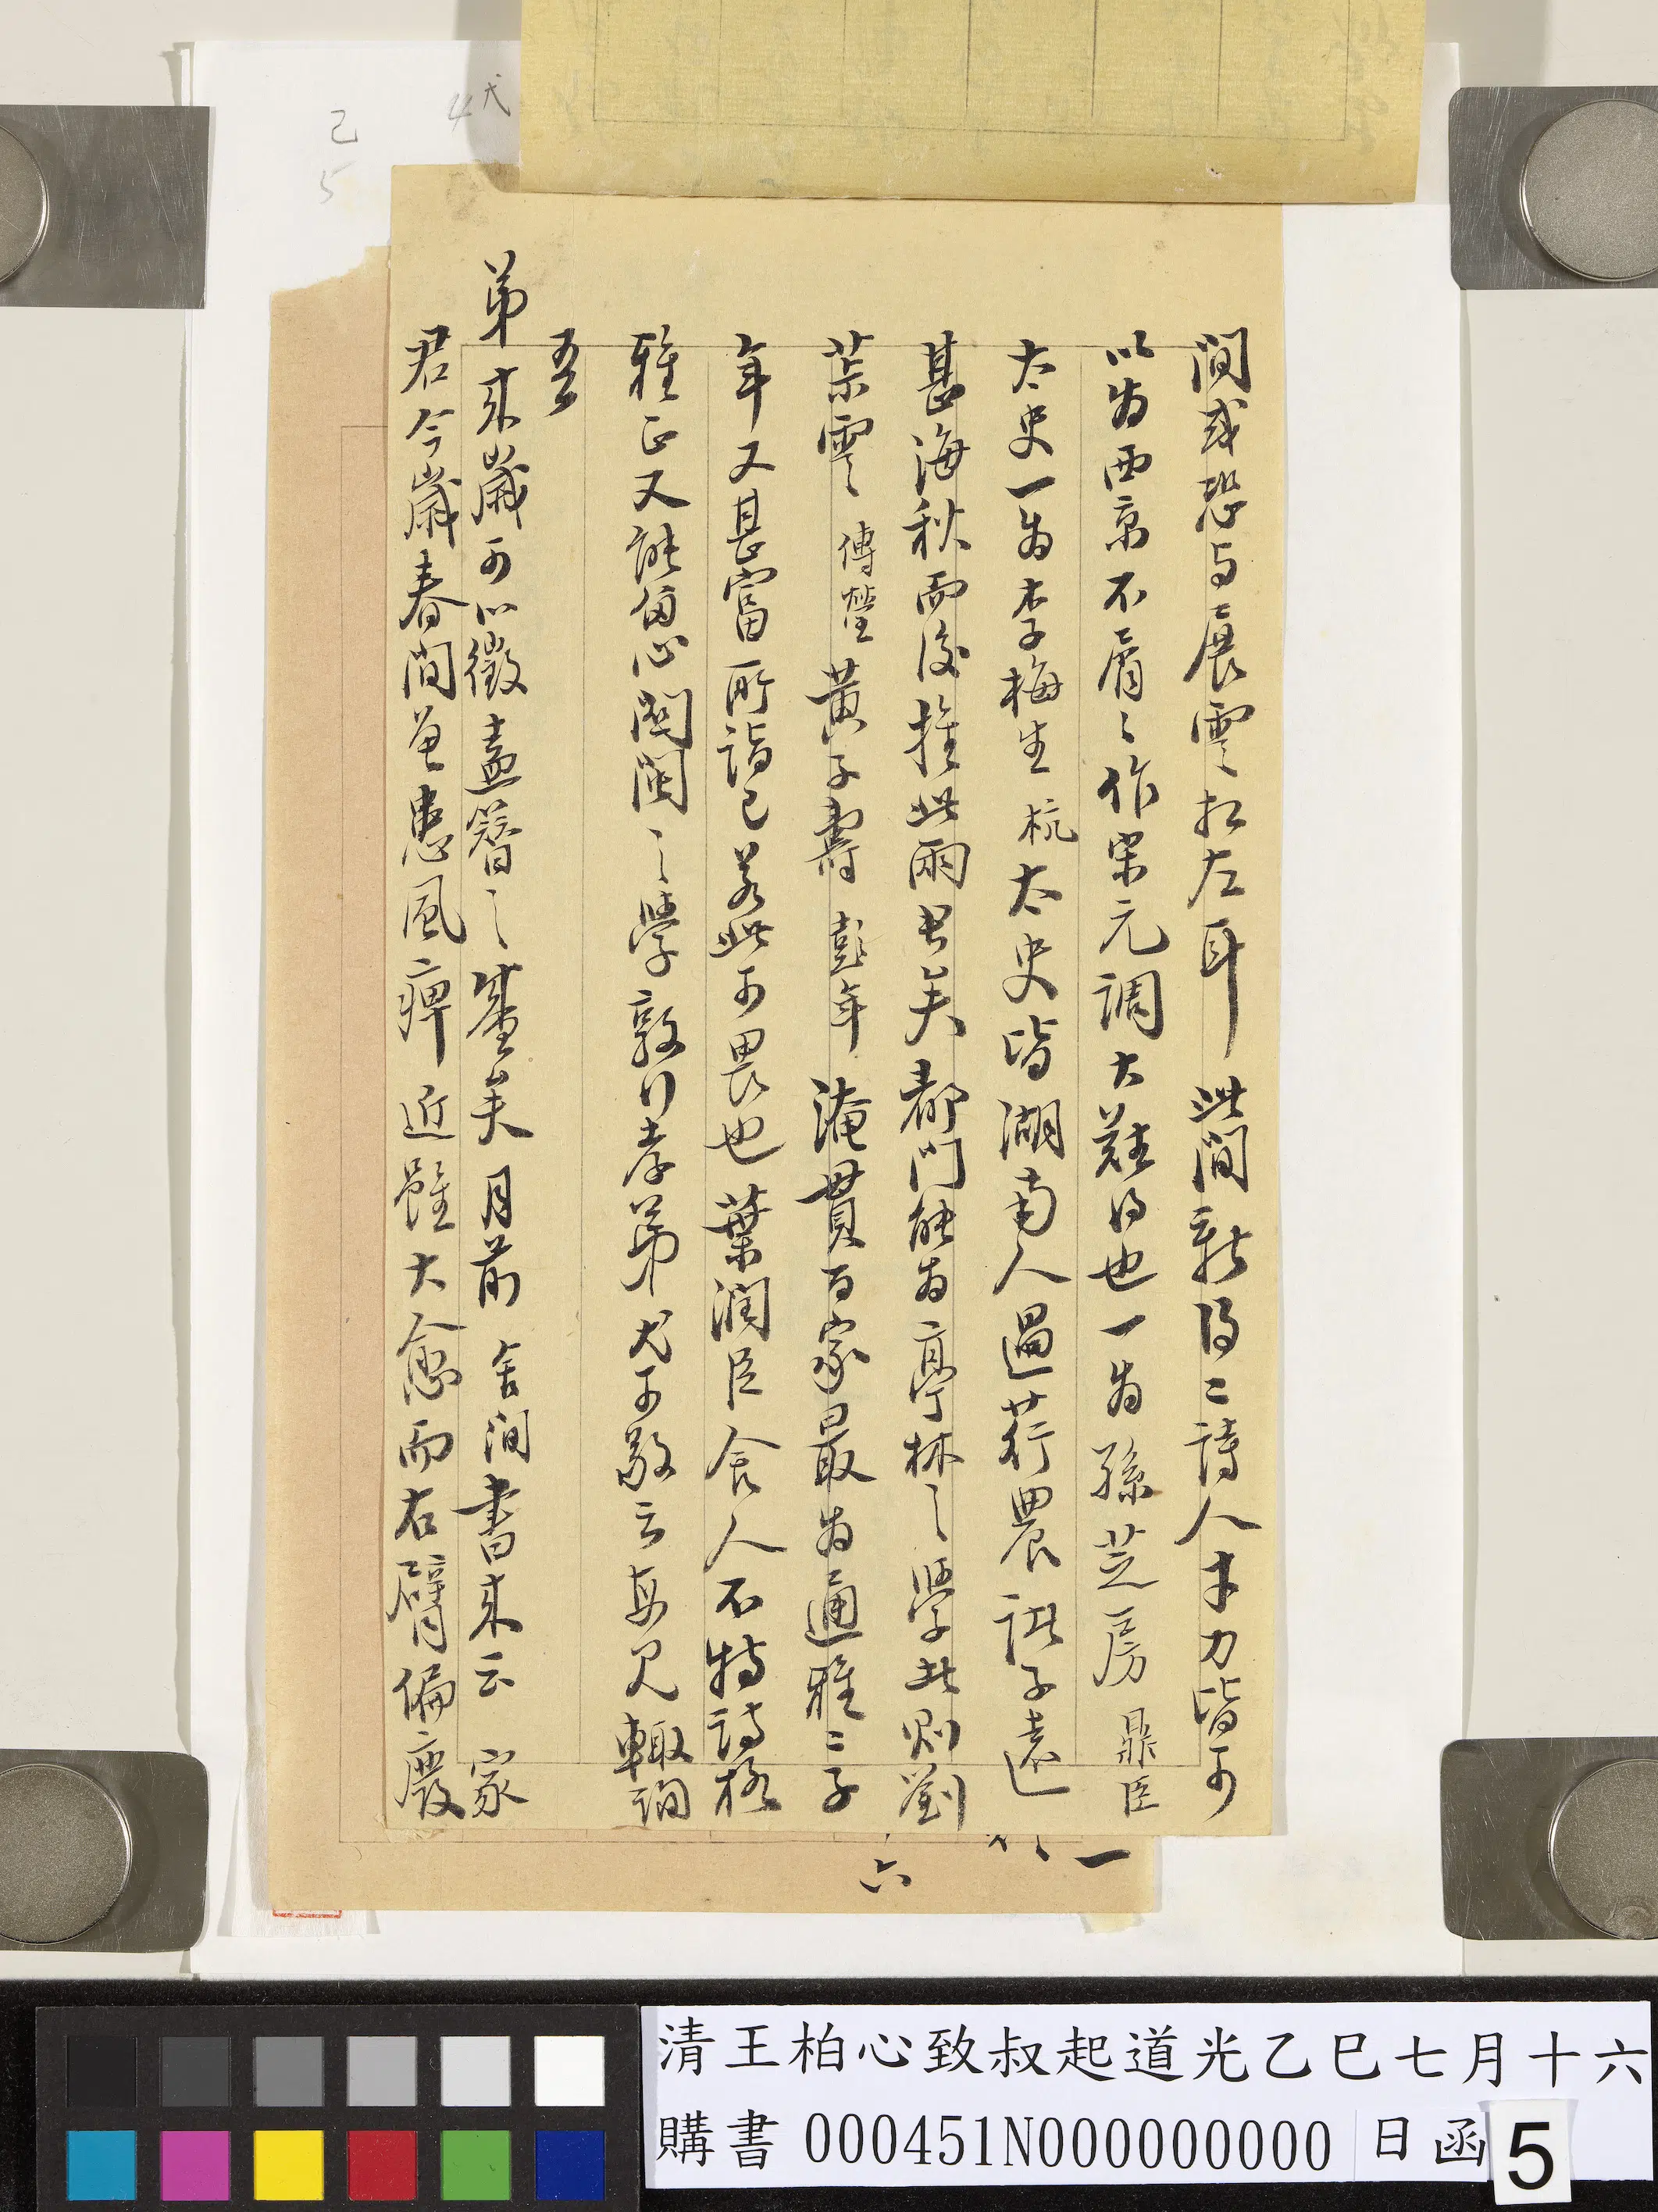 間或恐與展雲相左耳此間新得二詩人才力皆可
以為西京不屑屑作宋元調大難得也一為孫芝房鼎臣
太史一為李梅生杭太史皆湖南人過荇農誂子遠
甚海秋而後推此兩君矣都門能為亭林之學此則劉
茮雲傳瑩黃子壽彭年淹貫百家最為通雅二子
年又甚富所詣已若此可畏也葉潤臣舍人不特詩格
雅正又能留心閩閩之學敦行孝弟尤可敬云每見輒詢
吾
弟來歲可以徵盍簪之慶矣月前舍間書來云家
君今歲春間曾患風痹近雖大愈而右臂偏廢
一
六
己 弍
5 4
清王柏心致叔起道光乙巳七月十六
購書 000451N000000000 日函 5